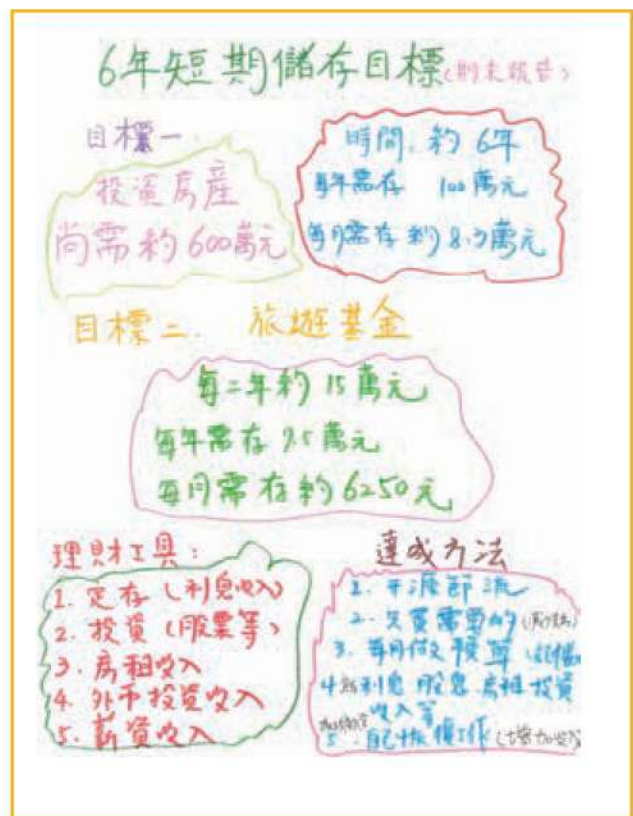 6年短期儲存目標(期末報告)
目標一.
投資房產
尚需約600萬元
時間:約6年
每年需存 100萬元
每月需存約8.3萬元
目標二. 旅遊基金
每二年約15萬元
每年需存7.5萬元
每月需存約6250元
理財工具:
1. 定存(利息收入)
2. 投資(股票等)
3. 房租收入
4. 外幣投資收入
5. 薪資收入
達成方法
1. 開源節流
2. 只買需要的
3. 每月做預算
4 利息 股息 房租 投資
收入等
5. 自己恢復工作(增加收入)